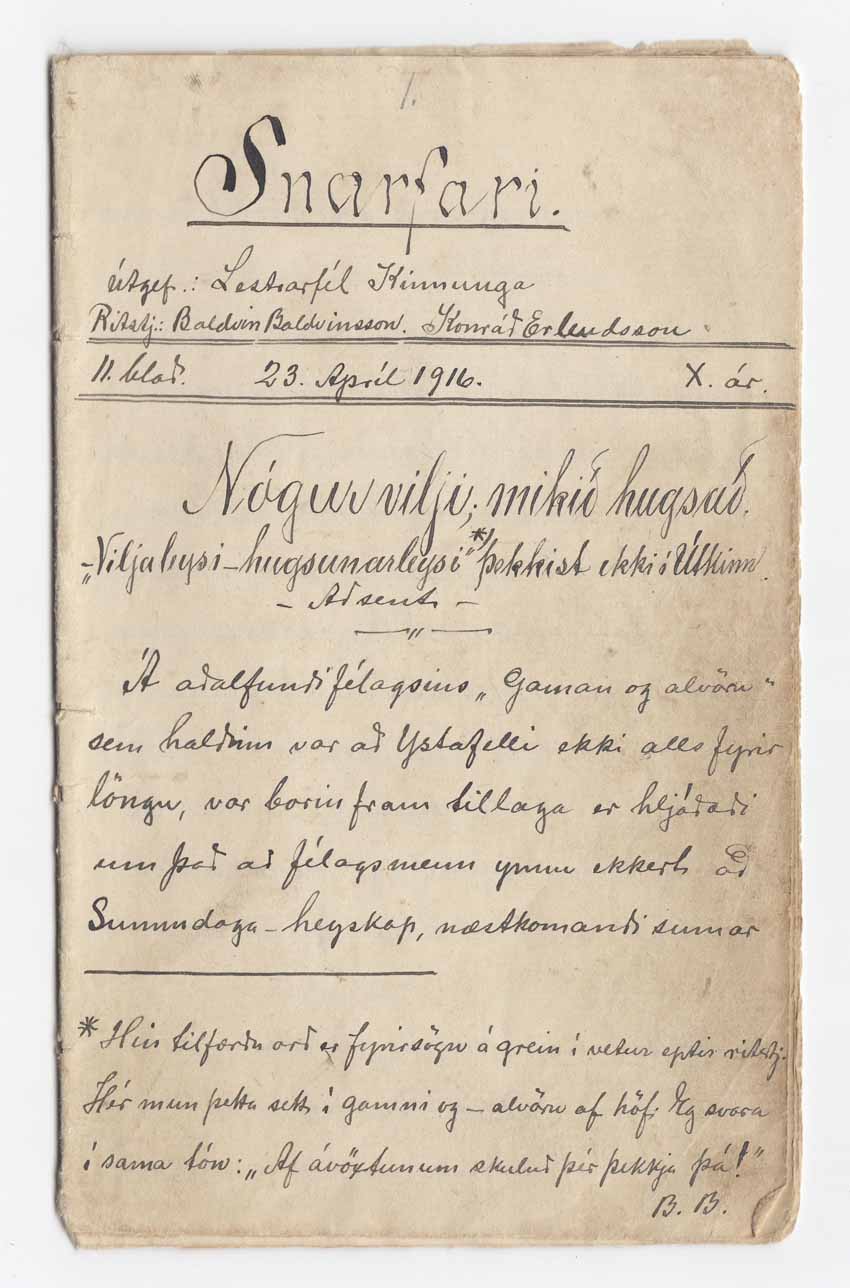 1.
Snarfari.
útgef.: Lestrarfél Kinnunga
Ritstj.: Baldvin Baldvinsson. Konráð Erlendsson
11. blað. 23. Apríl 1916. X. ár.
Nógur vilji; mikið hugsað.
-„Viljaleysi - hugsunarleysi“*) þekkist ekki í Útkinn.
- Aðsent -
Á aðalfundi félagsins „Gaman og alvöru“
sem haldinn var að Ystafelli ekki alls fyrir
löngu, var borin fram tillaga er hljóðaði
um það að félagsmenn ynnu ekkert að
Sunnudaga - heyskap, næstkomandi sumar
* Hin tilfærðu orð er fyrirsögn á grein í vetur eptir ritstj.
Hér mun þetta sett í gamni og - alvöru af höf. Eg svara
í sama tón: „Af ávöxtunum skuluð þér þekkja þá!“
B. B.